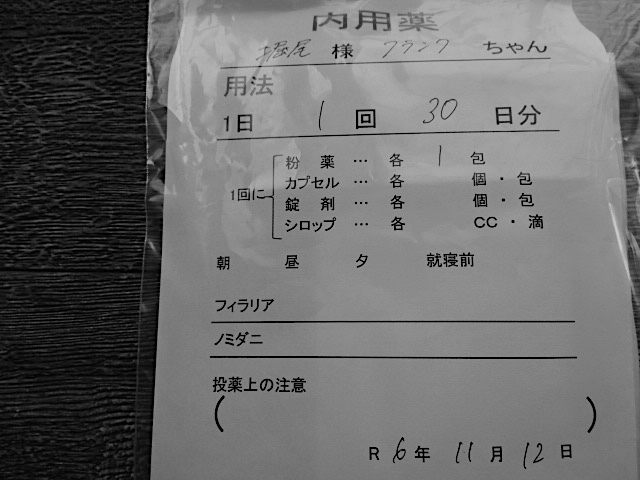 内用薬
堀尾 様 フランク ちゃん
用法
1日 1 回 30 日分
1回に
粉 薬 … 各 1 包
カプセル … 各 個 ・ 包
錠 剤 … 各 個 ・ 包
シロップ … 各 CC ・ 滴
朝 昼 夕 就寝前
フィラリア
ノミダニ
投薬上の注意
( )
R 6年 11月 12日